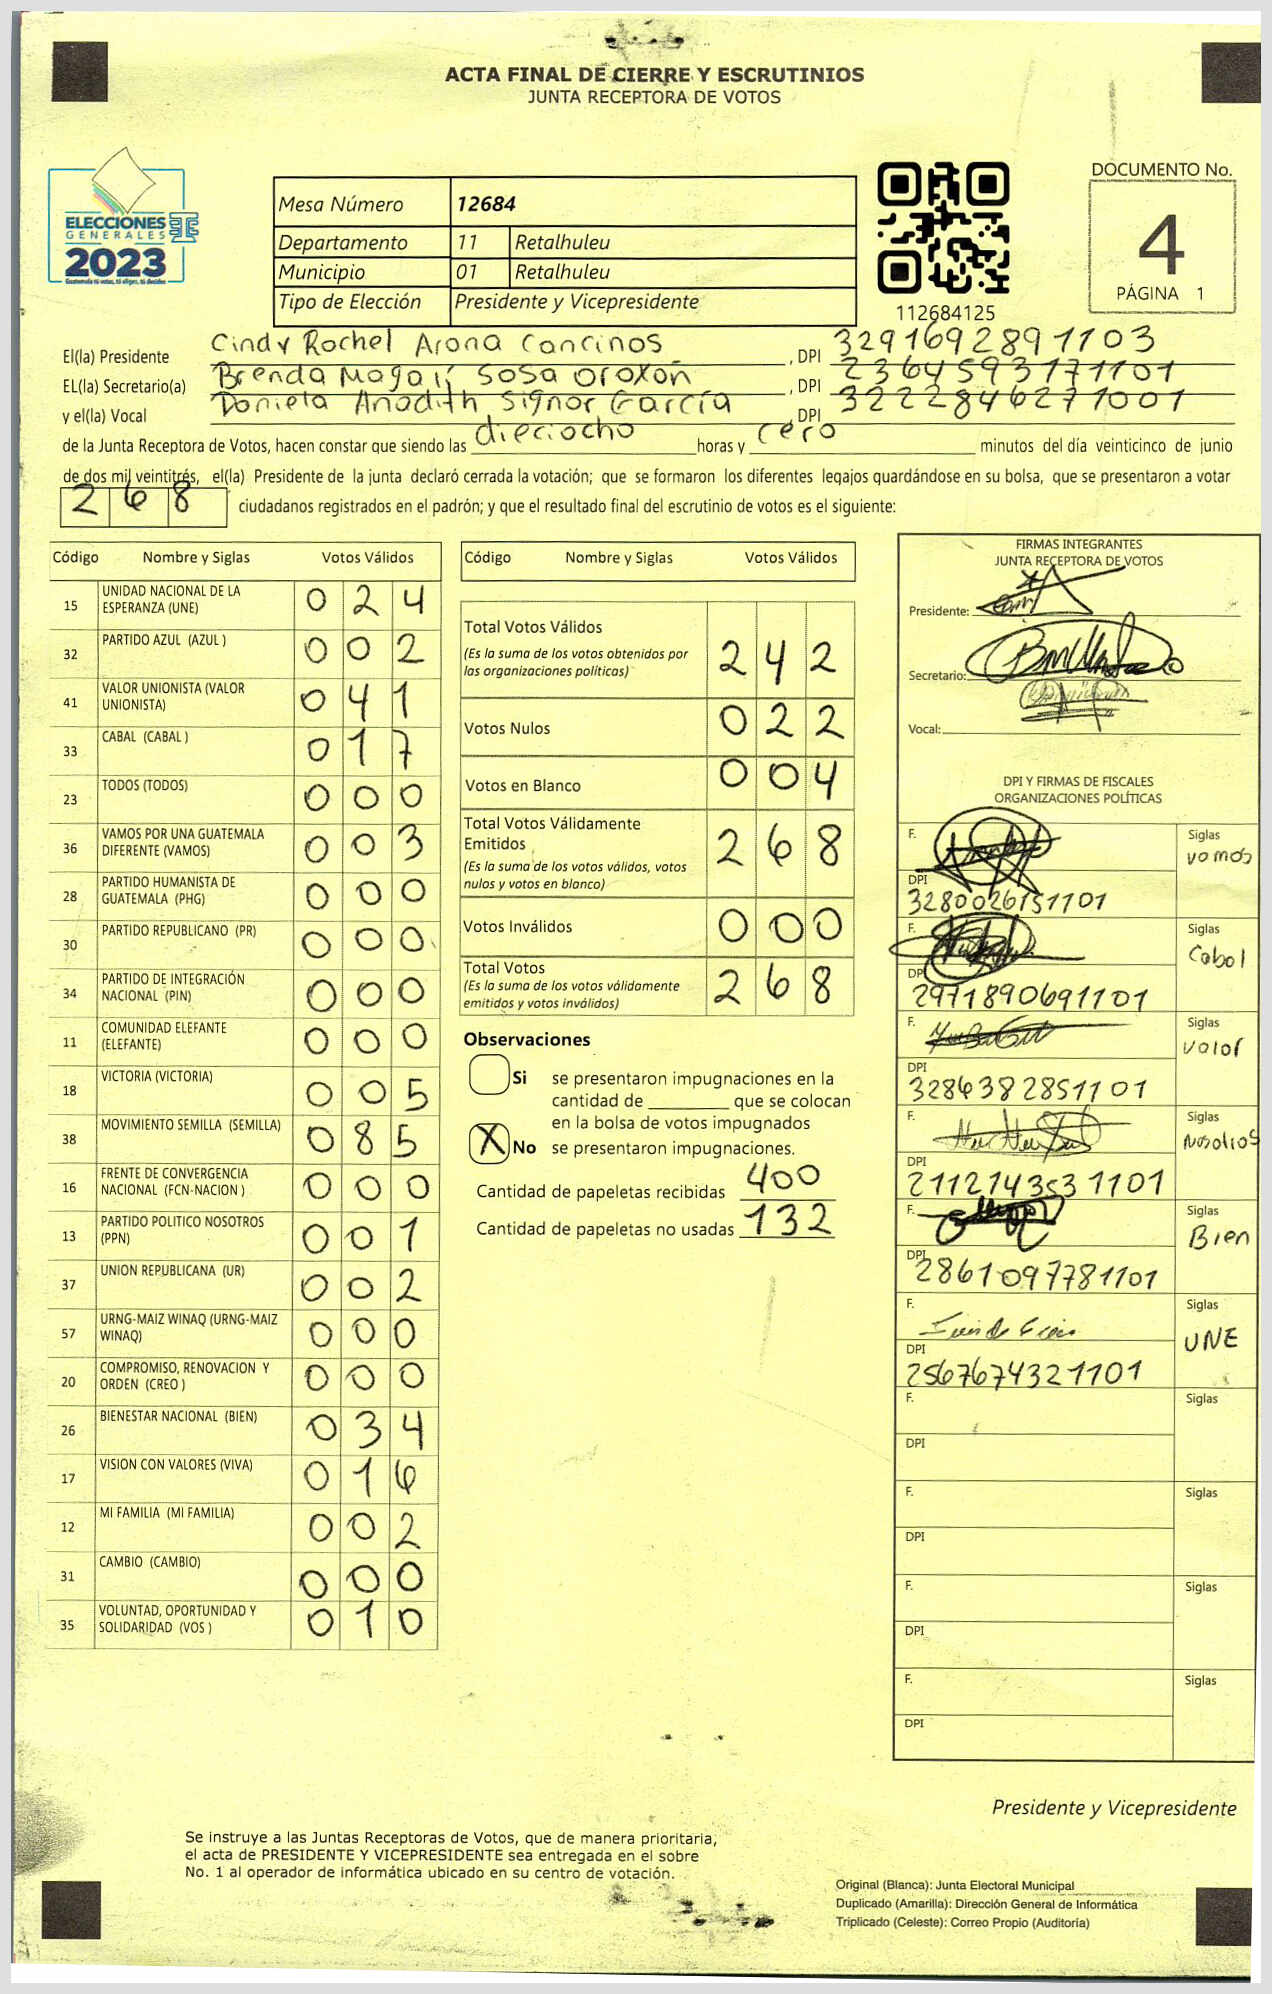 ACTA FINAL DE CIERRE Y ESCRUTINIOS
JUNTA RECEPTORA DE VOTOS
ELECCIONES
GENERALES
2023
Guatemala tú votas, tú eliges, tú decides
Mesa Número 12684
Departamento 11 Retalhuleu
Municipio 01 Retalhuleu
Tipo de Elección Presidente y Vicepresidente
112684125
DOCUMENTO No.
4
PÁGINA 1
El(la) Presidente Cindy Rochel Arona Concinos, DPI 3291692891103
EL(la) Secretario(a) Brenda Magalí Sosa Oroxon, DPI 2364593171101
y el(la) Vocal Doniela Anodith Signor García, DPI 3222846271001
de la Junta Receptora de Votos, hacen constar que siendo las dieciocho horas y cero minutos del día veinticinco de junio
de dos mil veintitrés, el(la) Presidente de la junta declaró cerrada la votación; que se formaron los diferentes legajos guardándose en su bolsa, que se presentaron a votar
268 ciudadanos registrados en el padrón; y que el resultado final del escrutinio de votos es el siguiente:
Código Nombre y Siglas Votos Válidos
15 UNIDAD NACIONAL DE LA
ESPERANZA (UNE) 024
32 PARTIDO AZUL (AZUL ) 002
41 VALOR UNIONISTA (VALOR
UNIONISTA) 041
33 CABAL (CABAL ) 017
23 TODOS (TODOS) 000
36 VAMOS POR UNA GUATEMALA
DIFERENTE (VAMOS) 003
28 PARTIDO HUMANISTA DE
GUATEMALA (PHG) 000
30 PARTIDO REPUBLICANO (PR) 000
34 PARTIDO DE INTEGRACIÓN
NACIONAL (PIN) 000
11 COMUNIDAD ELEFANTE
(ELEFANTE) 000
18 VICTORIA (VICTORIA) 005
38 MOVIMIENTO SEMILLA (SEMILLA) 085
16 FRENTE DE CONVERGENCIA
NACIONAL (FCN-NACION ) 000
13 PARTIDO POLITICO NOSOTROS
(PPN) 001
37 UNION REPUBLICANA (UR) 002
57 URNG-MAIZ WINAQ (URNG-MAIZ
WINAQ) 000
20 COMPROMISO, RENOVACION Y
ORDEN (CREO ) 000
26 BIENESTAR NACIONAL (BIEN) 034
17 VISION CON VALORES (VIVA) 016
12 MI FAMILIA (MI FAMILIA) 002
31 CAMBIO (CAMBIO) 000
35 VOLUNTAD, OPORTUNIDAD Y
SOLIDARIDAD (VOS ) 010
Código Nombre y Siglas Votos Válidos
Total Votos Válidos 242
(Es la suma de los votos obtenidos por
las organizaciones políticas)
Votos Nulos 022
Votos en Blanco 004
Total Votos Válidamente
Emitidos 268
(Es la suma de los votos válidos, votos
nulos y votos en blanco)
Votos Inválidos 000
Total Votos 268
(Es la suma de los votos válidamente
emitidos y votos inválidos)
Observaciones
Si se presentaron impugnaciones en la
cantidad de ________ que se colocan
en la bolsa de votos impugnados
X No se presentaron impugnaciones.
Cantidad de papeletas recibidas 400
Cantidad de papeletas no usadas 132
FIRMAS INTEGRANTES
JUNTA RECEPTORA DE VOTOS
Presidente:
Secretario:
Vocal:
DPI Y FIRMAS DE FISCALES
ORGANIZACIONES POLÍTICAS
F. Siglas vomos
DPI 3280026151101
F. Siglas Cobol
DPI 2971890691101
F. Siglas volor
DPI 3286382851101
F. Siglas Nosotros
DPI 2112143531101
F. Siglas Bien
DPI 2861097781101
F. Siglas UNE
DPI 2567674321101
F. Siglas
DPI
F. Siglas
DPI
F. Siglas
DPI
F. Siglas
DPI
Presidente y Vicepresidente
Se instruye a las Juntas Receptoras de Votos, que de manera prioritaria,
el acta de PRESIDENTE Y VICEPRESIDENTE sea entregada en el sobre
No. 1 al operador de informática ubicado en su centro de votación.
Original (Blanca): Junta Electoral Municipal
Duplicado (Amarilla): Dirección General de Informática
Triplicado (Celeste): Correo Propio (Auditoría)